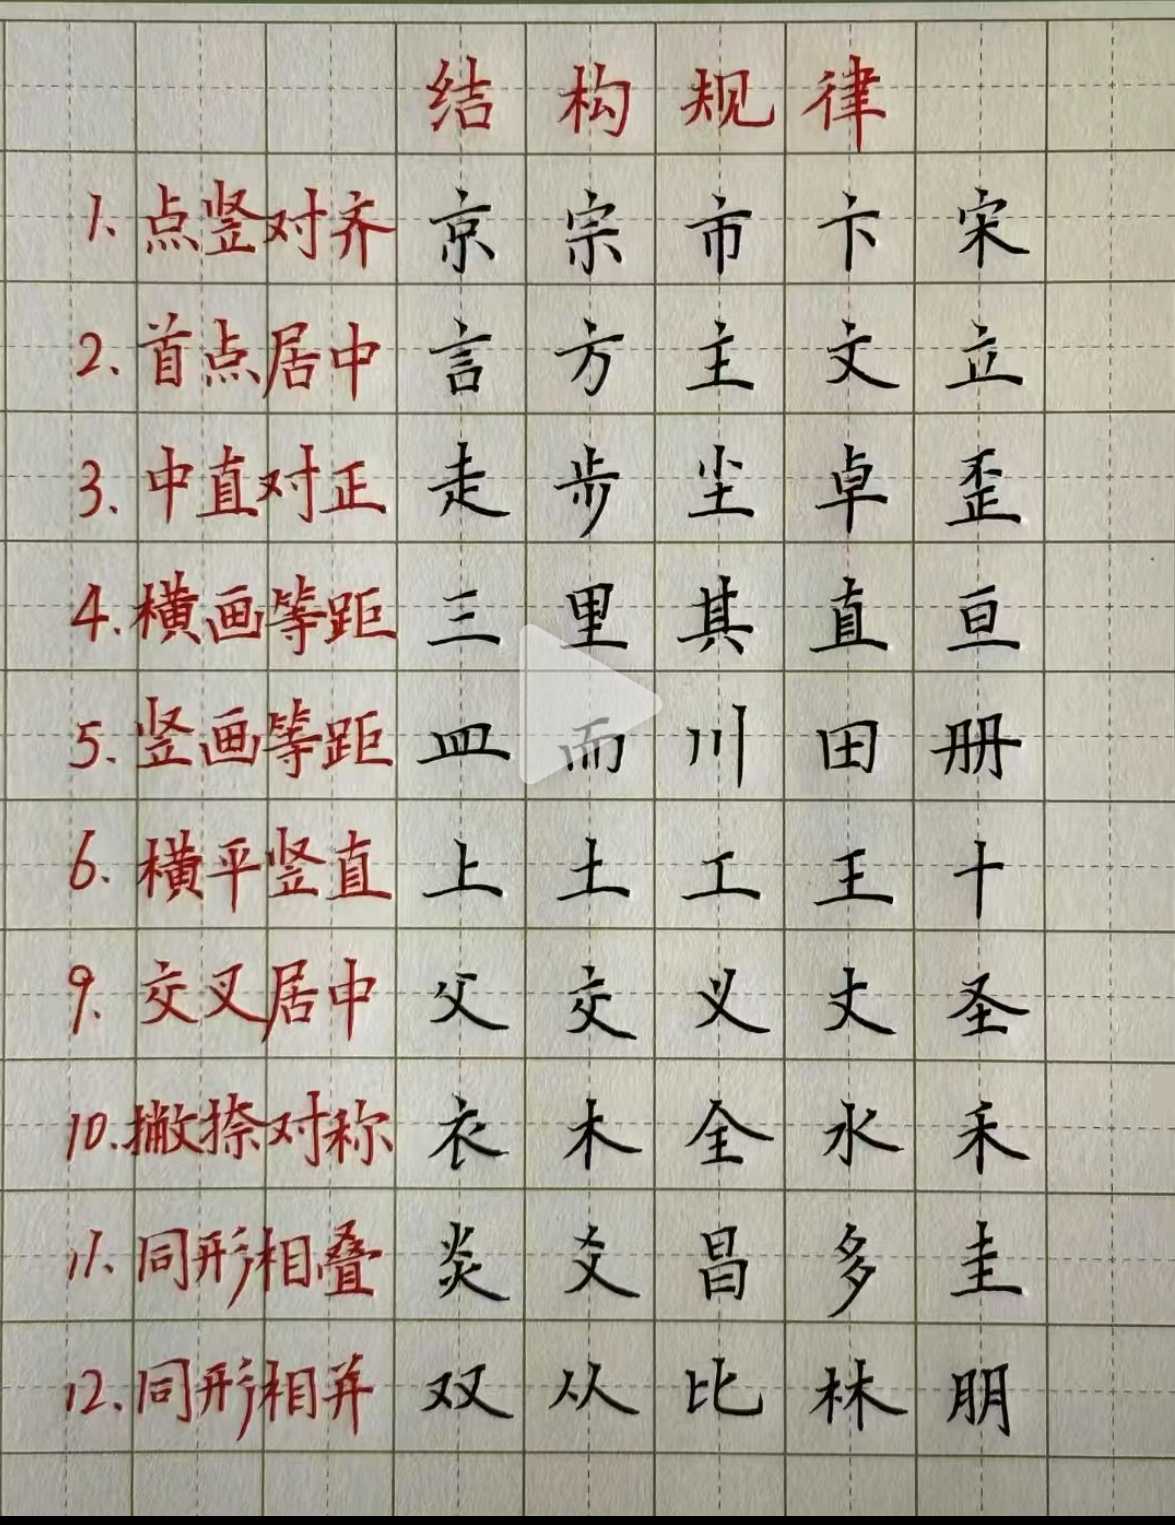 结构规律
1. 点竖对齐 京 宗 市 卞 宋
2. 首点居中 言 方 主 文 立
3. 中直对正 走 步 尘 卓 歪
4. 横画等距 三 里 其 直 亘
5. 竖画等距 皿 而 川 田 册
6. 横平竖直 上 土 工 王 十
9. 交叉居中 父 交 义 丈 圣
10. 撇捺对称 衣 木 全 水 禾
11. 同形相叠 炎 爻 昌 多 圭
12. 同形相并 双 从 比 林 朋